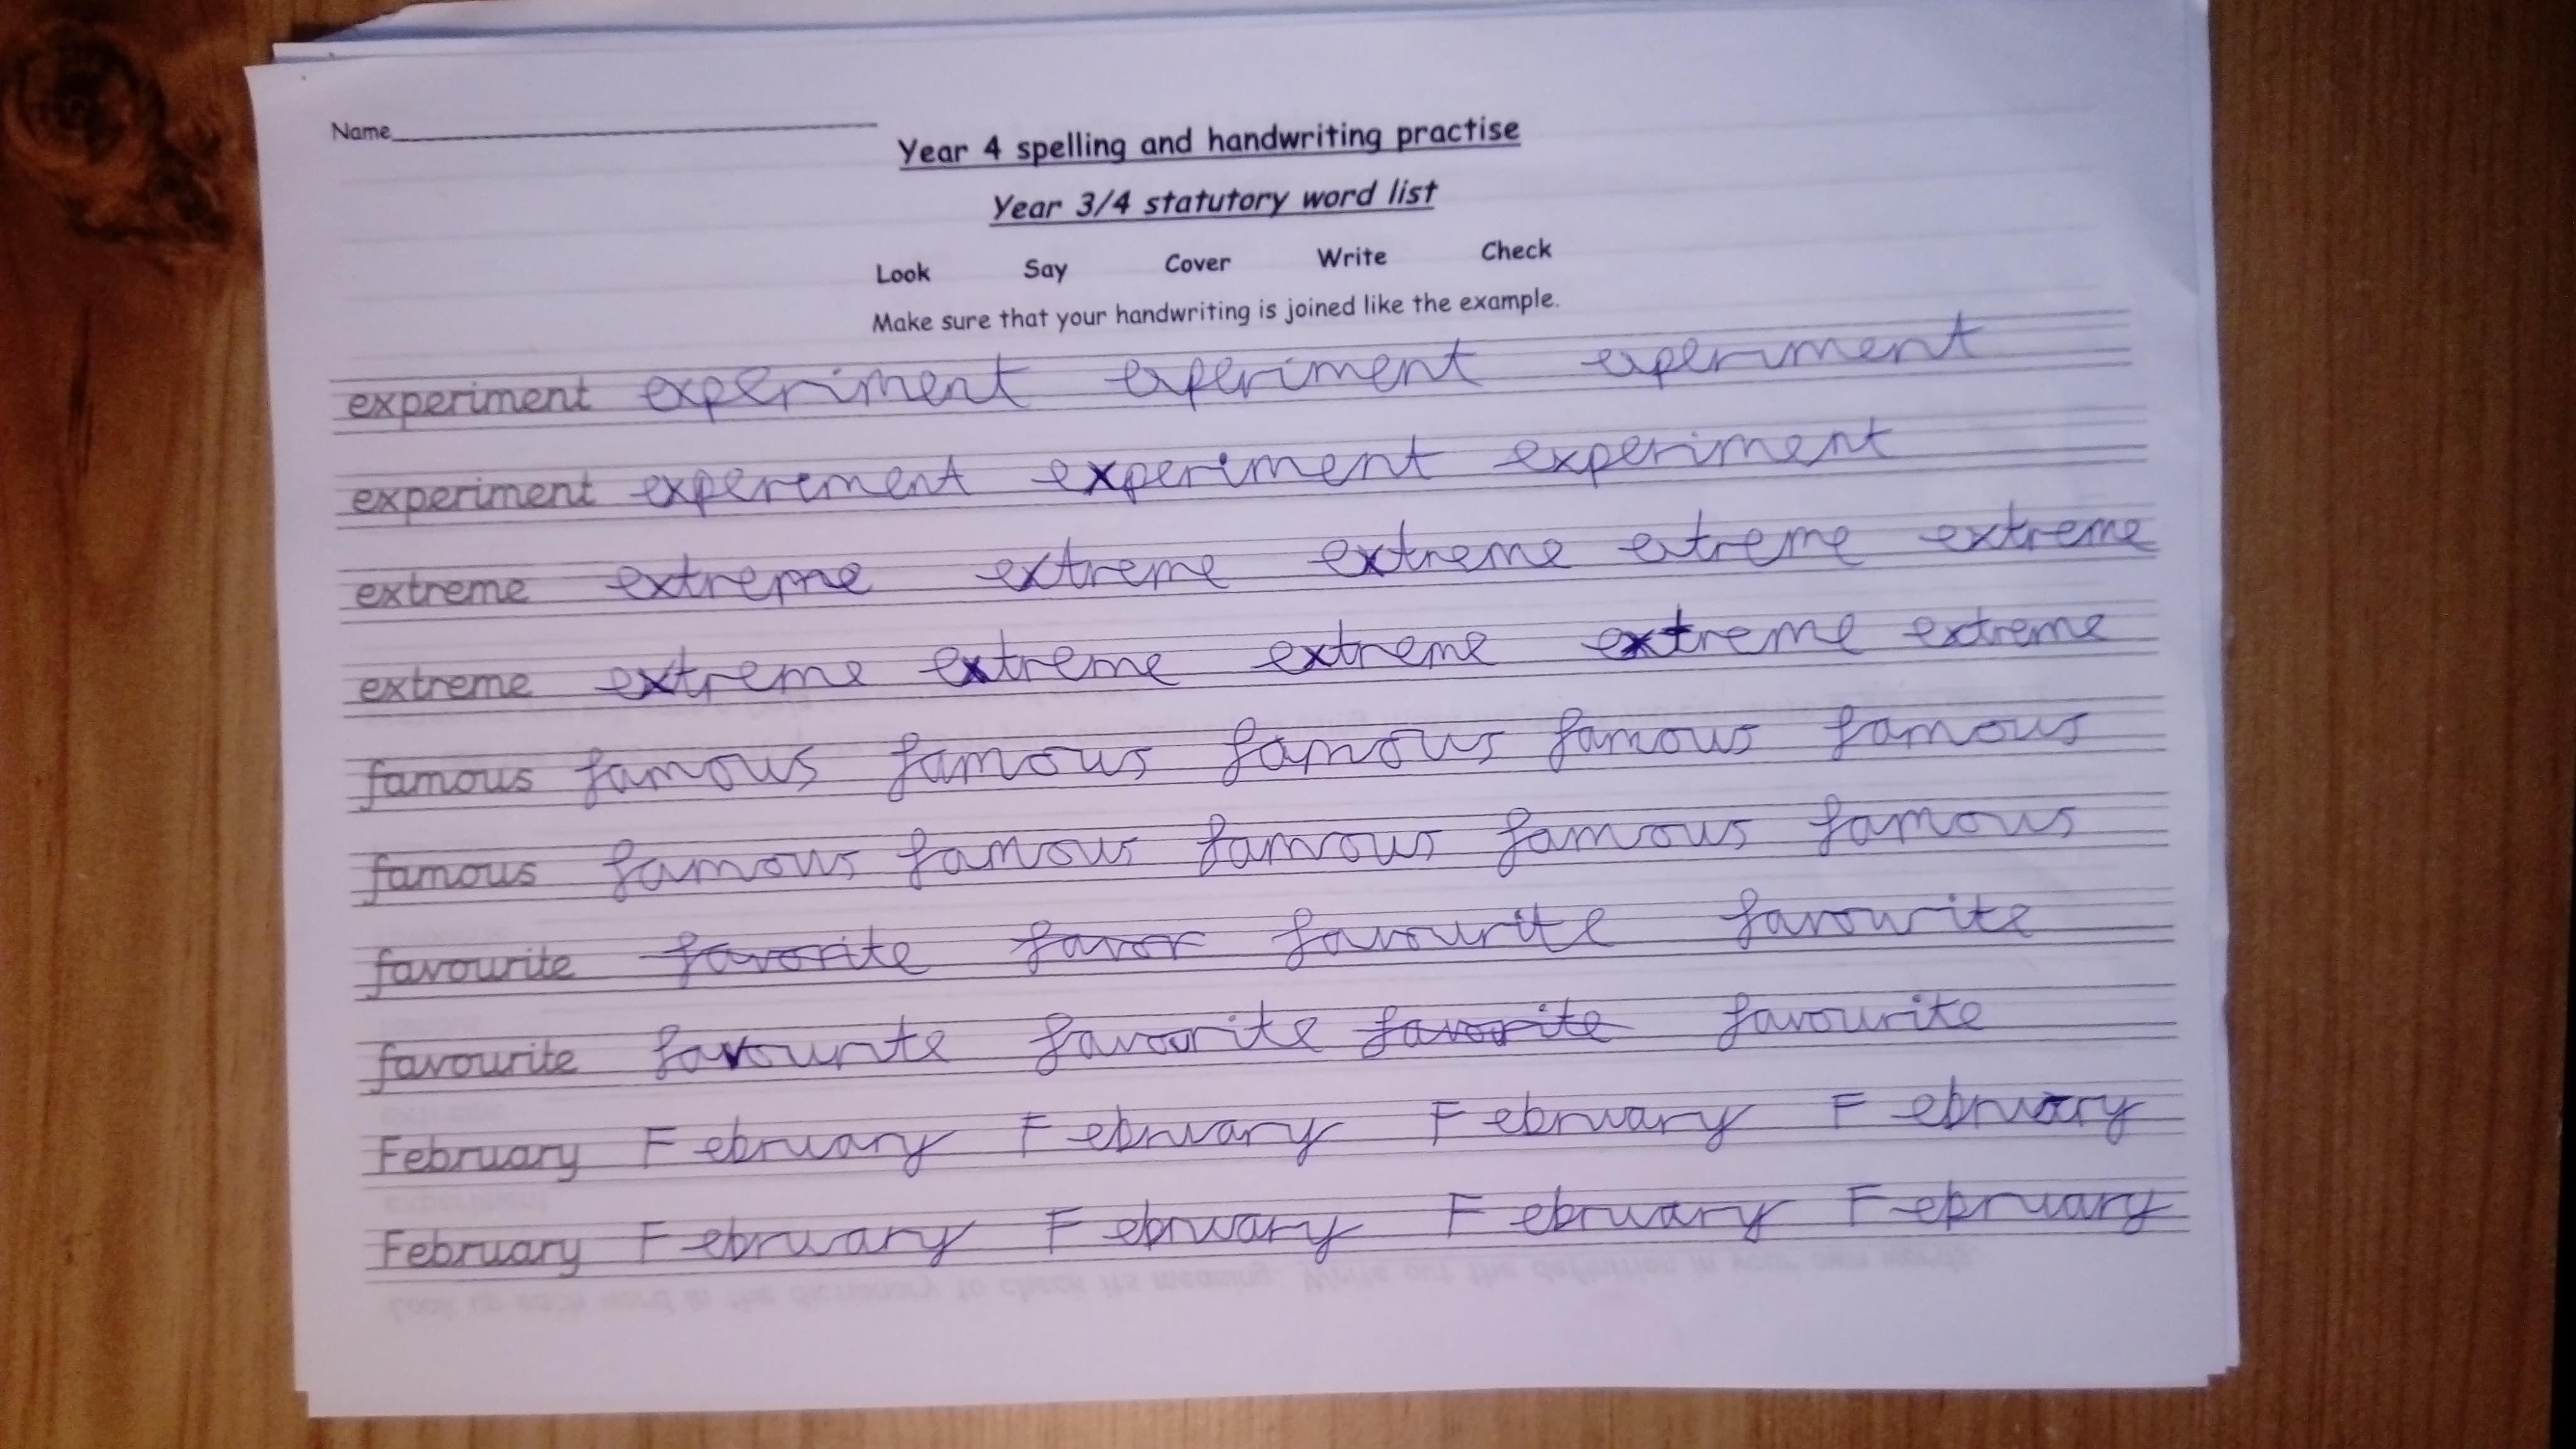 Name
Year 4 spelling and handwriting practise
Year 3/4 statutory word list
Look Say Cover Write Check
Make sure that your handwriting is joined like the example.
experiment experiment experiment experiment
experiment experement experiment experiment
extreme extreme extreme extreme extreme extreme
extreme extreme extreme extreme extreme extreme
famous famous famous famous famous famous
famous famous famous famous famous famous
favourite favorite favor favourite favourite
favourite favourite favoorite favorite favourite
February February February February February
February February February February February
Look up each word in the dictionary to check its meaning. Write out the definition in your own words.